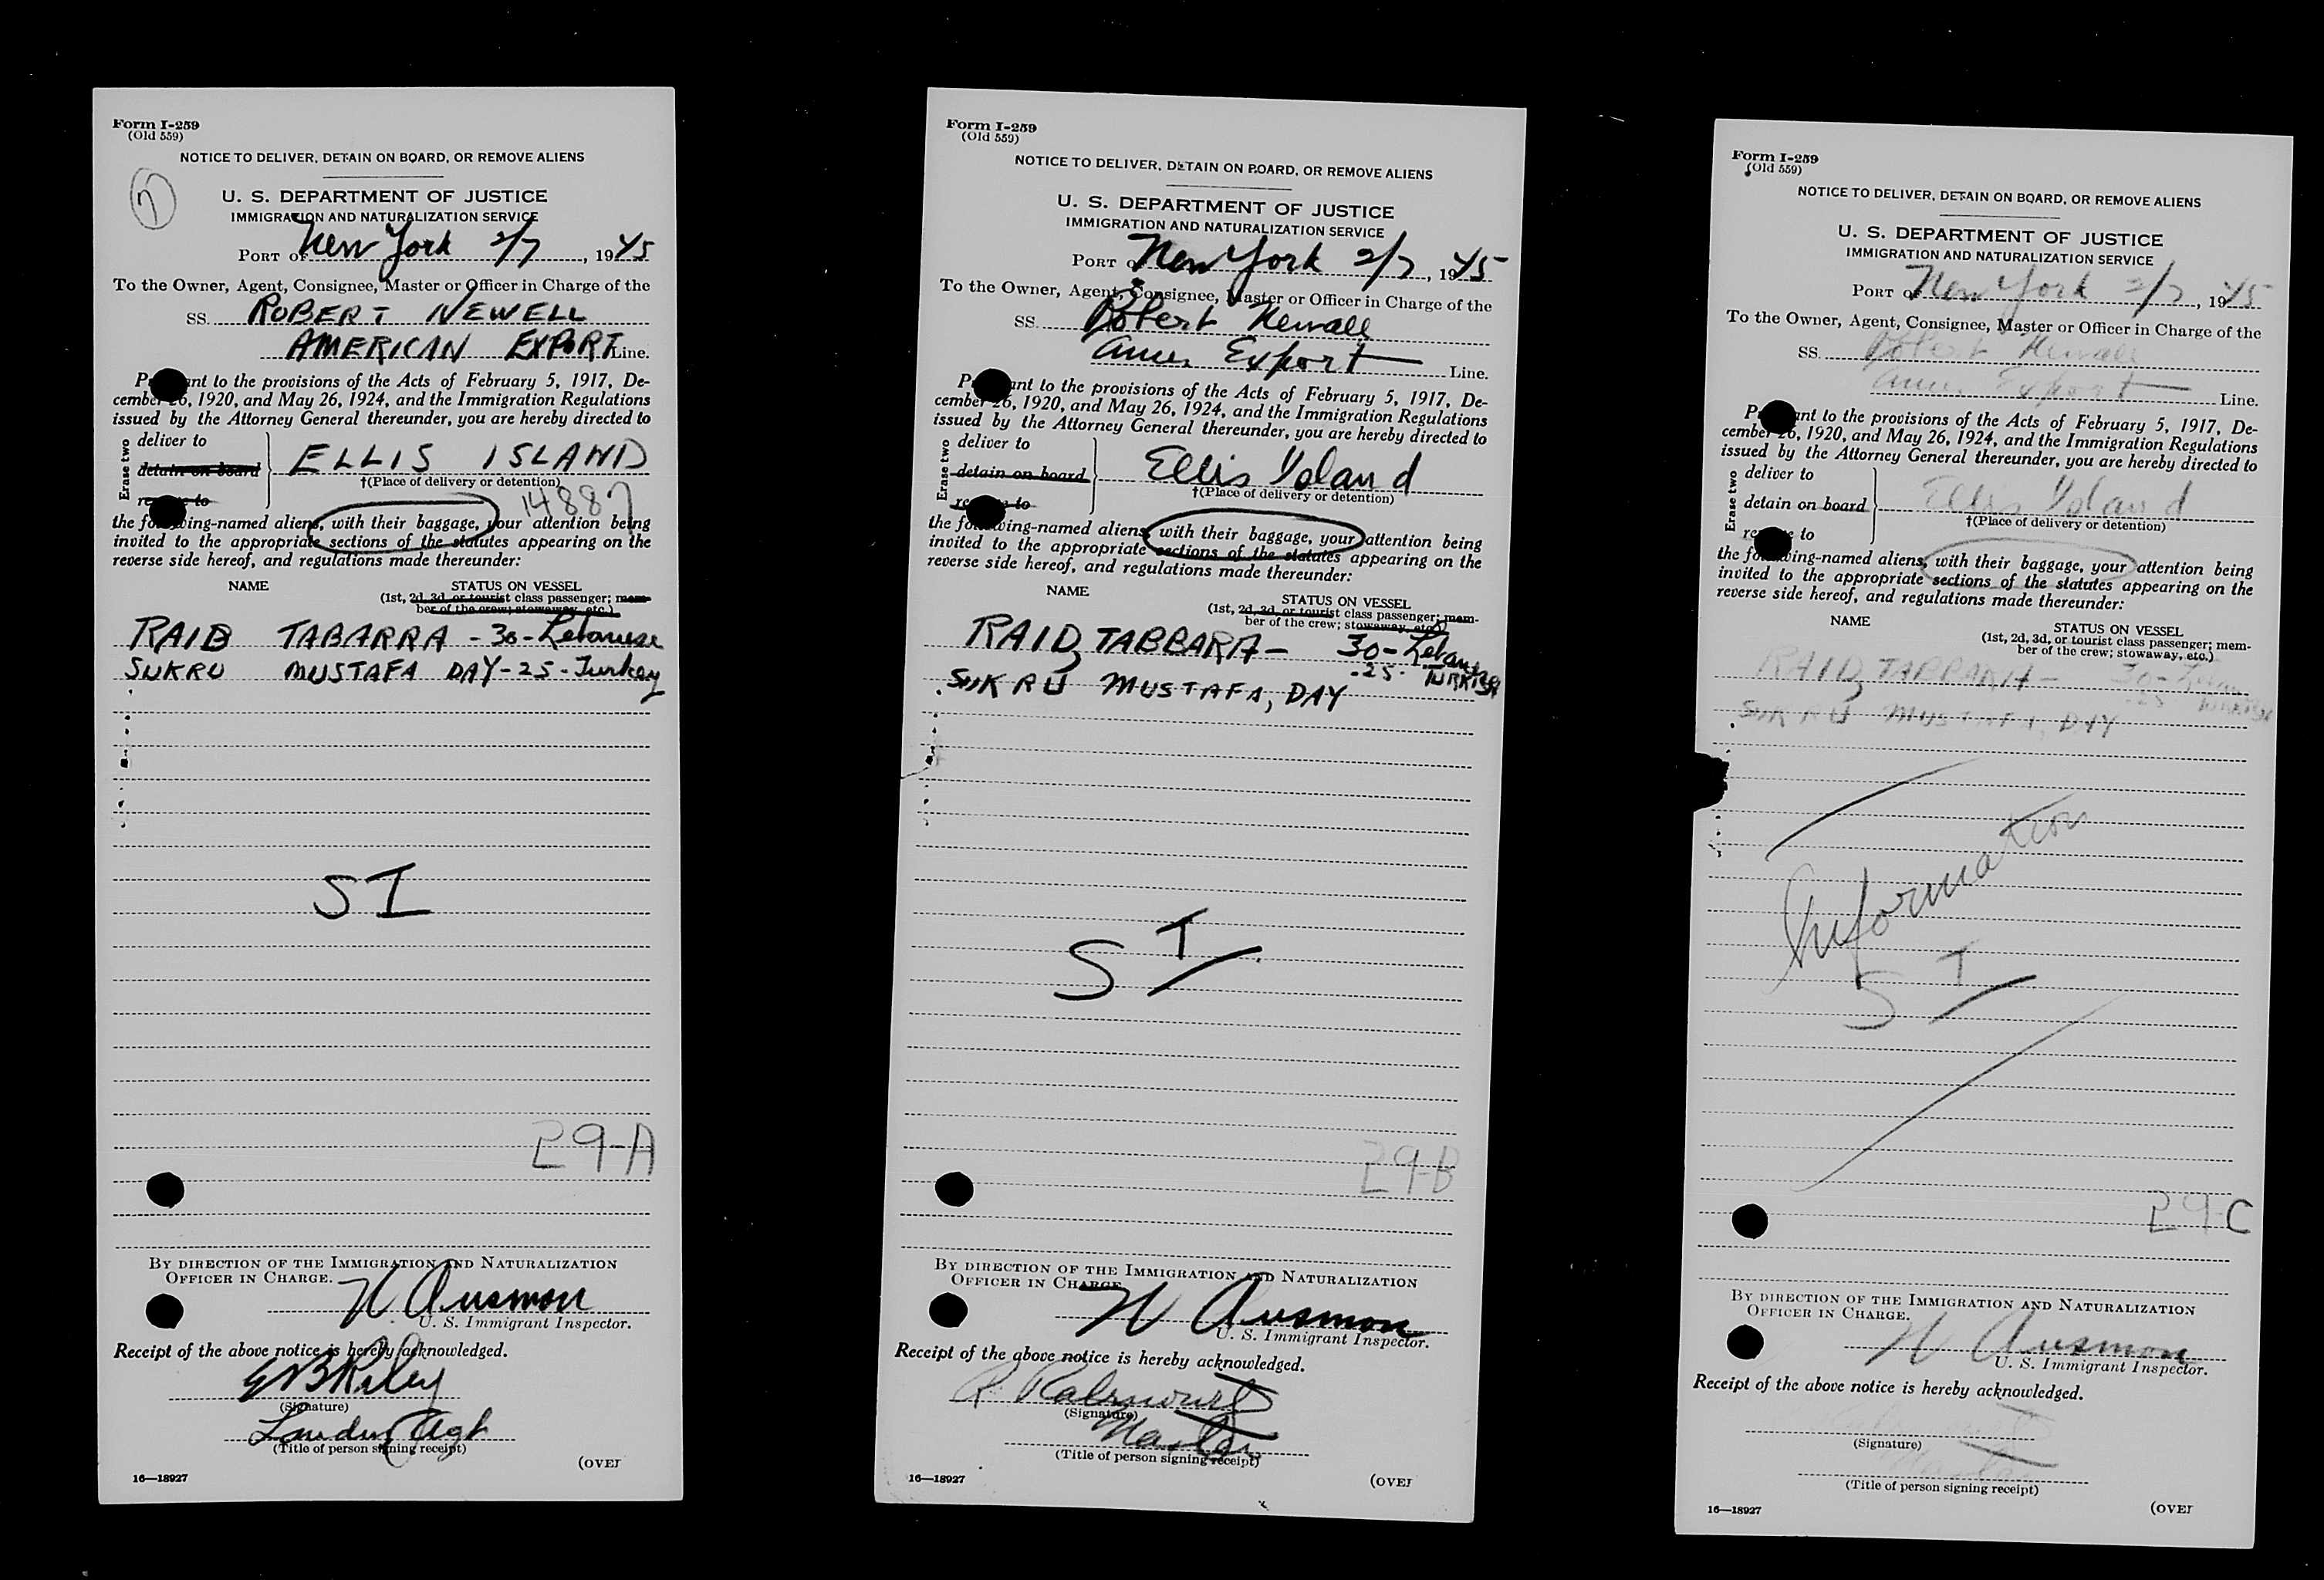 Form I-259
(Old 559)
NOTICE TO DELIVER, DETAIN ON BOARD, OR REMOVE ALIENS
U. S. DEPARTMENT OF JUSTICE
IMMIGRATION AND NATURALIZATION SERVICE
PORT of New York 2/7, 1945
To the Owner, Agent, Consignee, Master or Officer in Charge of the
SS. ROBERT NEWELL
AMERICAN EXPORT Line.
P nt to the provisions of the Acts of February 5, 1917, De-
cember 26, 1920, and May 26, 1924, and the Immigration Regulations
issued by the Attorney General thereunder, you are hereby directed to
Erase two
deliver to
detain on board
ELLIS ISLAND
†(Place of delivery or detention)
re to
14887
the fo wing-named aliens, with their baggage, your attention being
invited to the appropriate sections of the statutes appearing on the
reverse side hereof, and regulations made thereunder:
NAME STATUS ON VESSEL
(1st, 2d, 3d, or tourist class passenger; mem-
ber of the crew; stowaway, etc.)
RAID TABARRA - 30 - Lebanese
SUKRU MUSTAFA DAY - 25 - Turkey
SI
29-A
BY DIRECTION OF THE IMMIGRATION AND NATURALIZATION
OFFICER IN CHARGE.
U. S. Immigrant Inspector.
Receipt of the above notice is hereby acknowledged.
EB Riley
(Signature)
Agt
(Title of person signing receipt)
(OVER
16—18927
Form I-259
(Old 559)
NOTICE TO DELIVER, DETAIN ON BOARD, OR REMOVE ALIENS
U. S. DEPARTMENT OF JUSTICE
IMMIGRATION AND NATURALIZATION SERVICE
PORT of New York 2/7, 1945
To the Owner, Agent, Consignee, Master or Officer in Charge of the
SS. Robert Newell
Amer Export Line.
P nt to the provisions of the Acts of February 5, 1917, De-
cember 26, 1920, and May 26, 1924, and the Immigration Regulations
issued by the Attorney General thereunder, you are hereby directed to
Erase two
deliver to
detain on board
Ellis Island
†(Place of delivery or detention)
re to
the fo wing-named aliens, with their baggage, your attention being
invited to the appropriate sections of the statutes appearing on the
reverse side hereof, and regulations made thereunder:
NAME STATUS ON VESSEL
(1st, 2d, 3d, or tourist class passenger; mem-
ber of the crew; stowaway, etc.)
RAID, TABBARA - 30 - Lebanese
SUKRU MUSTAFA, DAY - 25 - TURKISH
SI
29-B
BY DIRECTION OF THE IMMIGRATION AND NATURALIZATION
OFFICER IN CHARGE.
U. S. Immigrant Inspector.
Receipt of the above notice is hereby acknowledged.
(Signature)
Master
(Title of person signing receipt)
(OVER
16—18927
Form I-259
(Old 559)
NOTICE TO DELIVER, DETAIN ON BOARD, OR REMOVE ALIENS
U. S. DEPARTMENT OF JUSTICE
IMMIGRATION AND NATURALIZATION SERVICE
PORT of New York 2/7, 1945
To the Owner, Agent, Consignee, Master or Officer in Charge of the
SS. Robert Newell
Amer Export Line.
P nt to the provisions of the Acts of February 5, 1917, De-
cember 26, 1920, and May 26, 1924, and the Immigration Regulations
issued by the Attorney General thereunder, you are hereby directed to
Erase two
deliver to
detain on board
Ellis Island
†(Place of delivery or detention)
re to
the fo wing-named aliens, with their baggage, your attention being
invited to the appropriate sections of the statutes appearing on the
reverse side hereof, and regulations made thereunder:
NAME STATUS ON VESSEL
(1st, 2d, 3d, or tourist class passenger; mem-
ber of the crew; stowaway, etc.)
RAID, TABBARA - 30 - Lebanese
SUKRU MUSTAFA, DAY - 25 TURKISH
Information
SI
29-C
BY DIRECTION OF THE IMMIGRATION AND NATURALIZATION
OFFICER IN CHARGE.
U. S. Immigrant Inspector.
Receipt of the above notice is hereby acknowledged.
(Signature)
Master
(Title of person signing receipt)
(OVER
16—18927